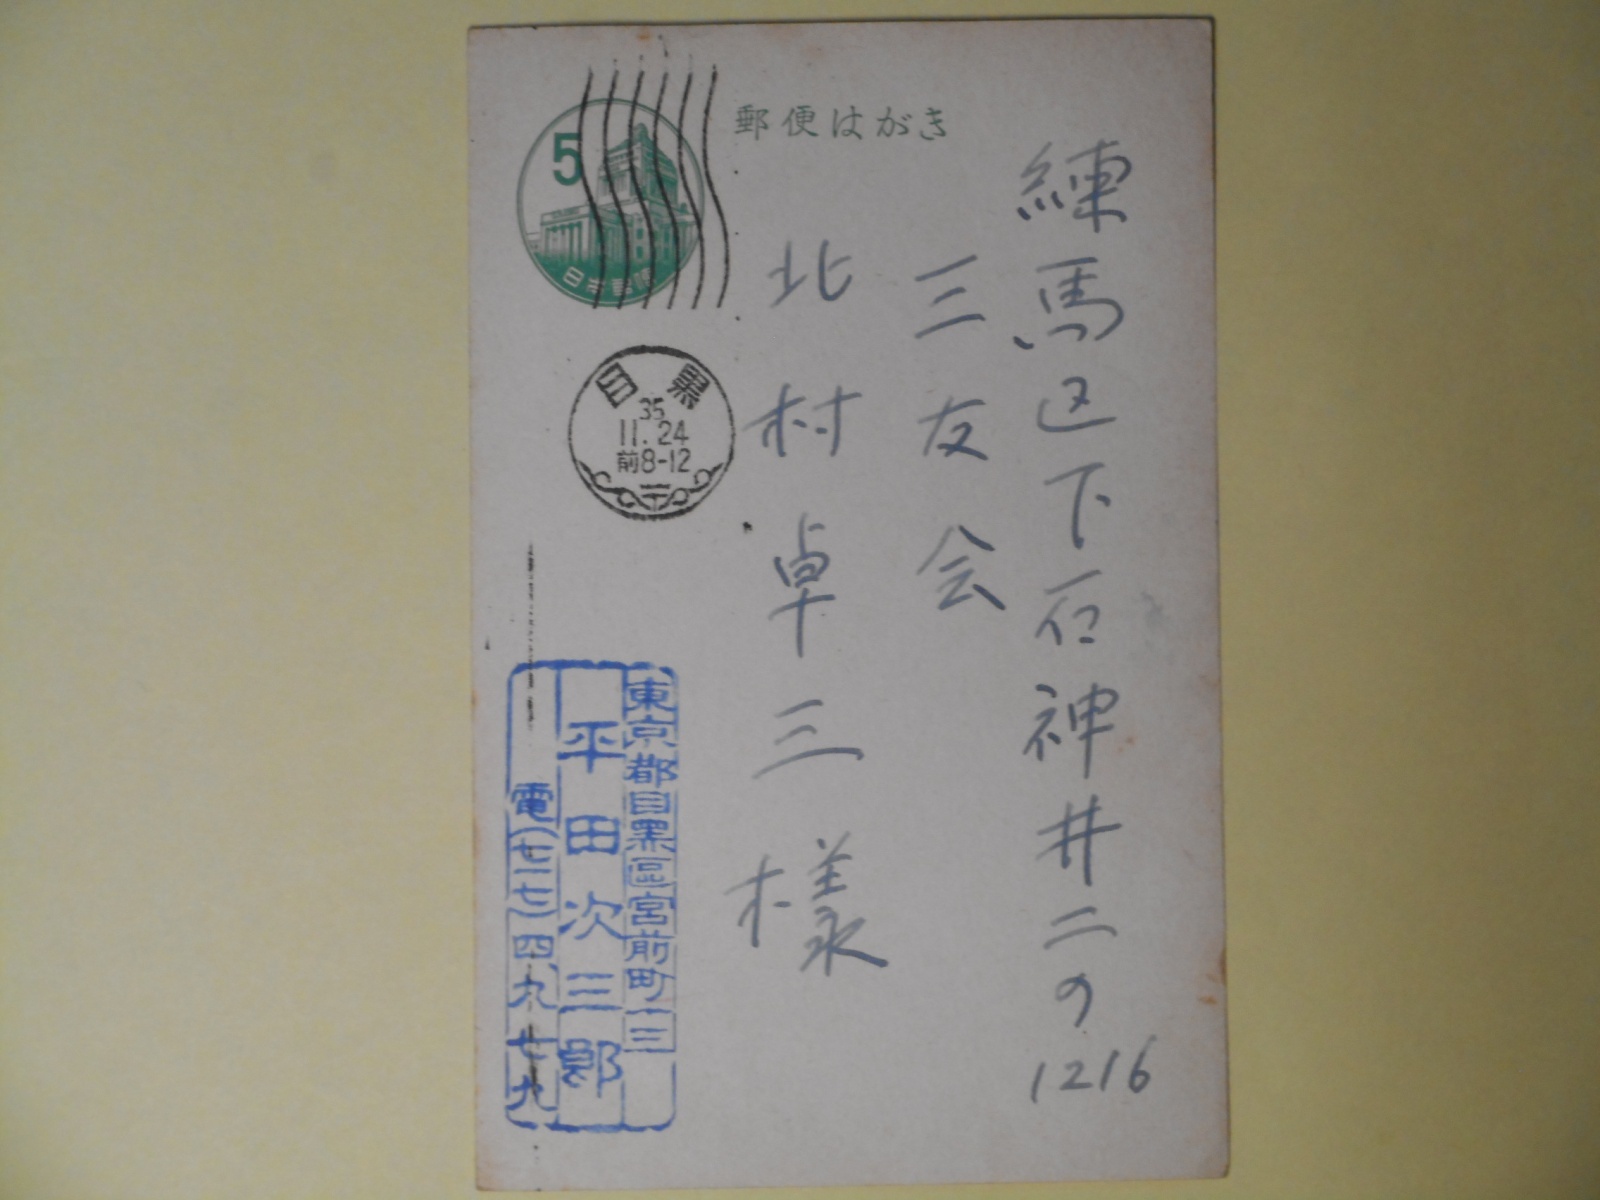 郵便はがき
5
日本郵便
目黒
35
11.24
前8-12
練馬区下石神井二の1216
三友会
北村卓三様
東京都目黒區宮前町一三
平田次三郎
電(七一七)四九七九